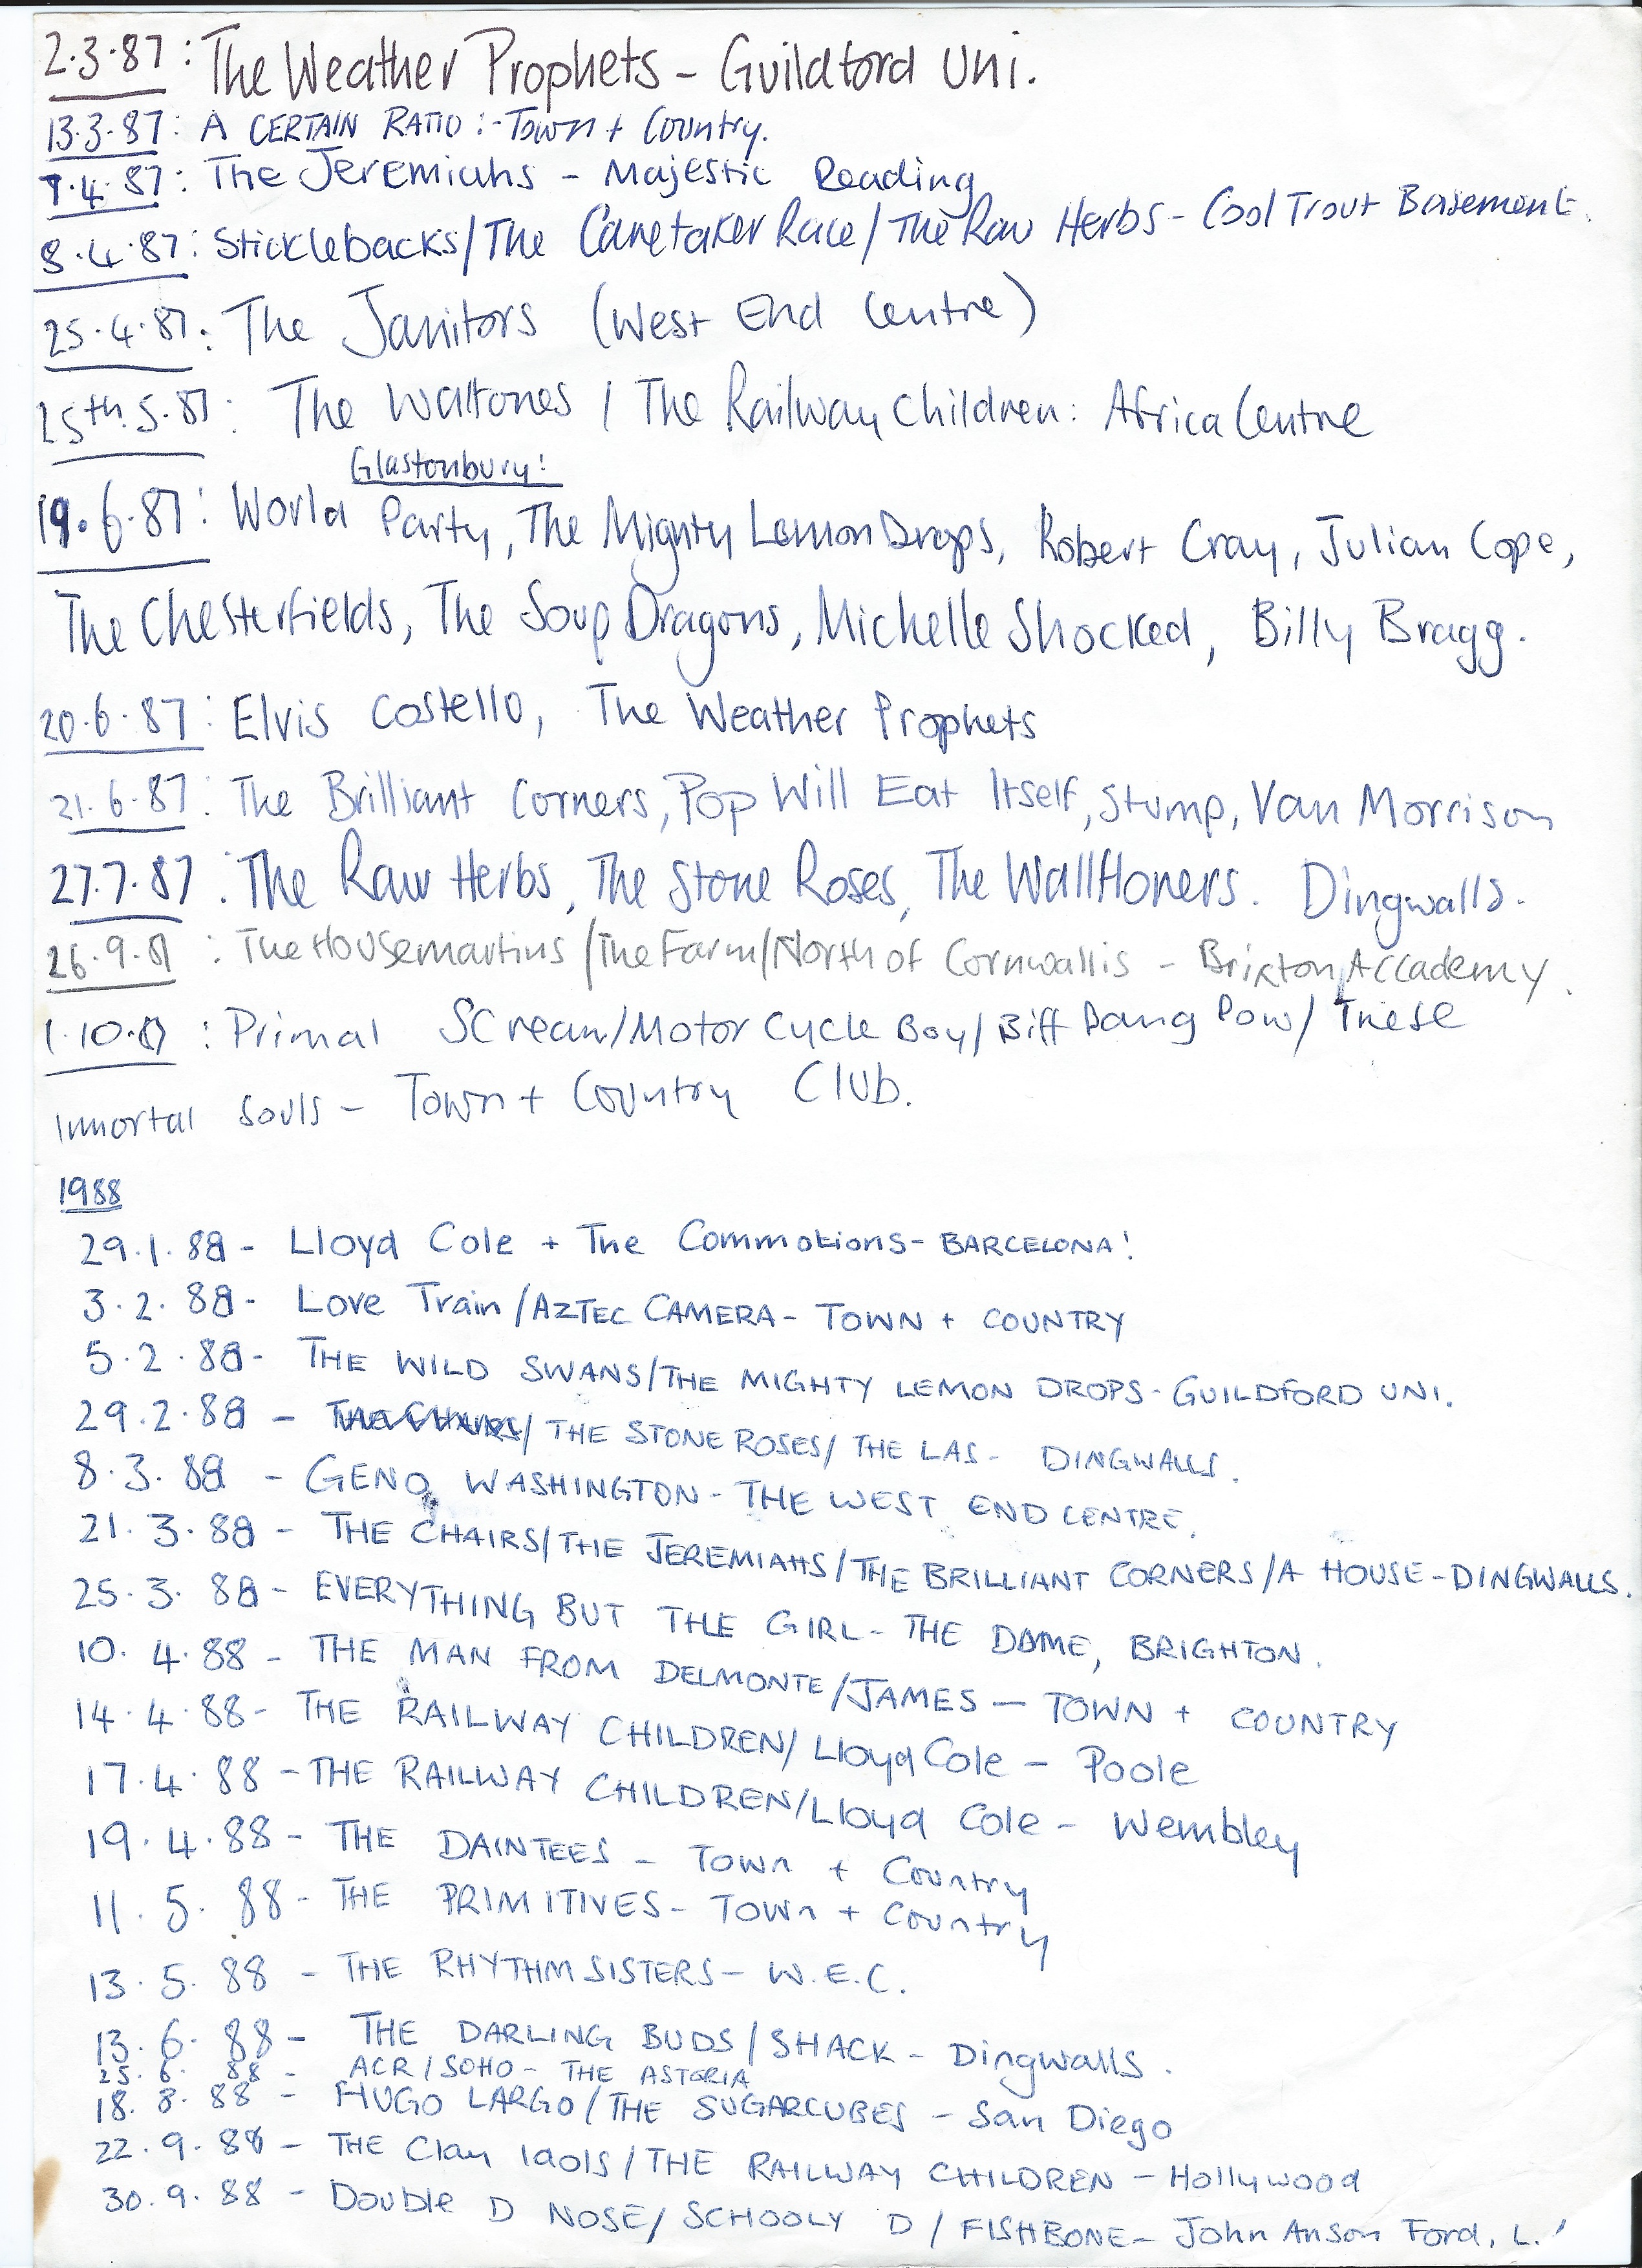 2.3.87: The Weather Prophets - Guildford Uni.
13.3.87: A CERTAIN RATIO:- Town + Country.
7.4.87: The Jeremiahs - Majestic Reading
8.4.87: Sticklebacks/The Caretaker Race/The Raw Herbs - Cool Trout Basement.
25.4.87: The Janitors (West End Centre)
25th.5.87: The Waltones / The Railway Children: Africa Centre
Glastonbury:
19.6.87: World Party, The Mighty Lemon Drops, Robert Cray, Julian Cope,
The Chesterfields, The Soup Dragons, Michelle Shocked, Billy Bragg.
20.6.87: Elvis Costello, The Weather Prophets
21.6.87: The Brilliant Corners, Pop Will Eat Itself, Stump, Van Morrison
27.7.87: The Raw Herbs, The Stone Roses, The Wallflowers. Dingwalls.
26.9.87: The Housemartins/The Farm/North of Cornwallis - Brixton Accademy.
1.10.87: Primal Scream/Motor Cycle Boy/Biff Bang Pow/These
Immortal Souls - Town + Country Club.
1988
29.1.88 - Lloyd Cole + The Commotions - BARCELONA!
3.2.88 - Love Train/AZTEC CAMERA - TOWN + COUNTRY
5.2.88 - THE WILD SWANS/THE MIGHTY LEMON DROPS - GUILDFORD UNI.
29.2.88 - / THE STONE ROSES/ THE LAS - DINGWALLS.
8.3.88 - GENO WASHINGTON - THE WEST END CENTRE.
21.3.88 - THE CHAIRS/THE JEREMIAHS/THE BRILLIANT CORNERS/A HOUSE - DINGWALLS.
25.3.88 - EVERYTHING BUT THE GIRL - THE DOME, BRIGHTON.
10.4.88 - THE MAN FROM DELMONTE/JAMES - TOWN + COUNTRY
14.4.88 - THE RAILWAY CHILDREN/Lloyd Cole - Poole
17.4.88 - THE RAILWAY CHILDREN/Lloyd Cole - Wembley
19.4.88 - THE DAINTEES - Town + Country
11.5.88 - THE PRIMITIVES - Town + Country
13.5.88 - THE RHYTHM SISTERS - W.E.C.
13.6.88 - THE DARLING BUDS/SHACK - Dingwalls.
25.6.88 - ACR/SOHO - THE ASTORIA
18.8.88 - HUGO LARGO/THE SUGARCUBES - San Diego
22.9.88 - THE Clay Idols/THE RAILWAY CHILDREN - Hollywood
30.9.88 - Double D NOSE/ SCHOOLY D / FISHBONE - John Anson Ford, L.